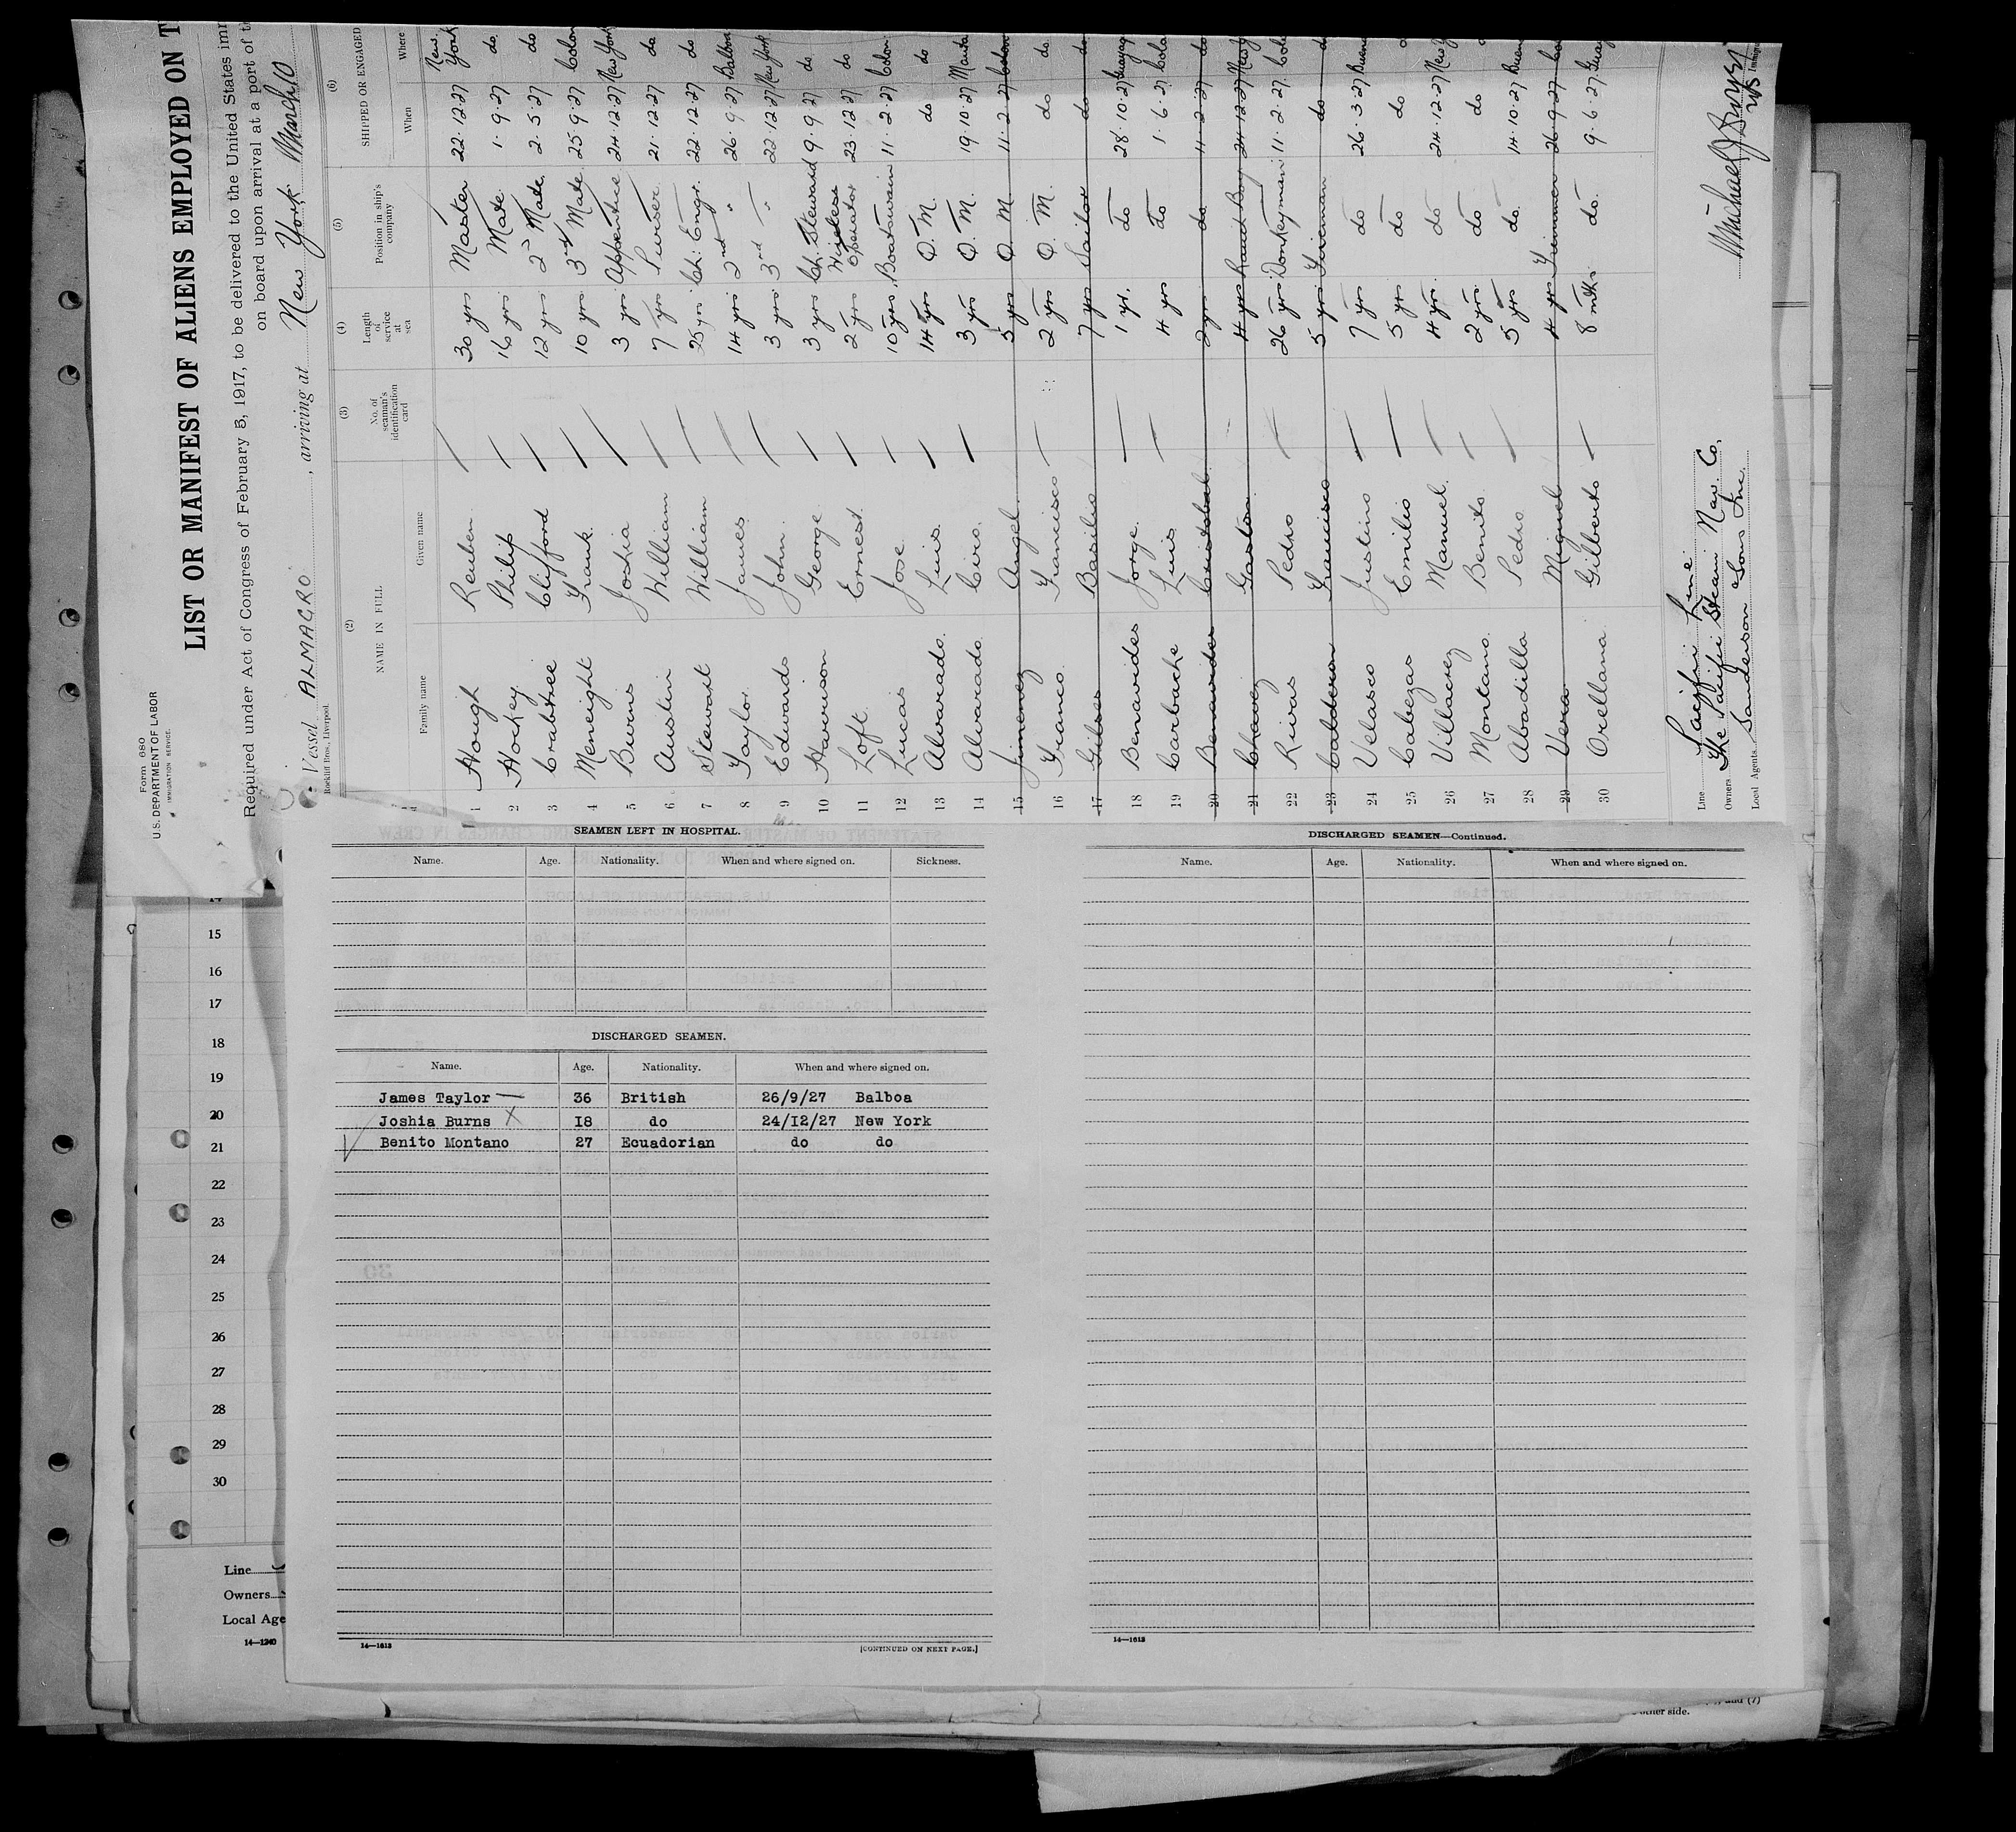 Form 680
U.S. DEPARTMENT OF LABOR
IMMIGRATION SERVICE.
LIST OR MANIFEST OF ALIENS EMPLOYED ON T
Required under Act of Congress of February 5, 1917, to be delivered to the United States imm
on board upon arrival at a port of th
Vessel ALMAGRO, arriving at New York March 10
Rockliff Bros., Liverpool.
(2) (3) (4) (5) (6)
NAME IN FULL No. of seaman's identification card Length of service at sea Position in ship's company SHIPPED OR ENGAGED
Family name Given name When Where
1 Hough Reuben 30 yrs Master 22.12.27 New York
2 Hockey Philip 16 yrs Mate 1.9.27 do
3 Crabtree Clifford 12 yrs 2nd Mate 2.5.27 do
4 Meneight Frank 10 yrs 3rd Mate 25.9.27 Colon
5 Burns Joshia 3 yrs Apprentice 24.12.27 New York
6 Austin William 7 yrs Purser 21.12.27 do
7 Stewart William 25 yrs Ch: Engr. 22.12.27 do
8 Taylor James 14 yrs 2nd " 26.9.27 Balboa
9 Edwards John 3 yrs 3rd " 22.12.27 New York
10 Harrison George 3 yrs Ch. Steward 9.9.27 do
11 Loft Ernest 2 yrs Wireless Operator 23.12.27 do
12 Lucas Jose 10 yrs Boatswain 11.2.27 Colon
13 Alvarado Luis 14 yrs Q.M. do do
14 Alvarado Ciro 3 yrs Q.M. 19.10.27 Manta
15 Jimenez Angel 5 yrs Q.M. 11.2.27 Colon
16 Franco Francisco 2 yrs Q.M. do do
17 Gilses Basilio 7 yrs Sailor do do
18 Benavides Jorge 1 yr. do 28.10.27 Guayaq
19 Carbache Luis 4 yrs do 1.6.27 Colo
20 Benavides Cristobal 2 yrs do 11.2.27 do
21 Chavez Gaston 4 yrs Boy 24.12.27 New Y
22 Rivas Pedro 26 yrs Donkeyman 11.2.27 Colo
23 Calderon Francisco 5 yrs Fireman do do
24 Velasco Justino 7 yrs do 26.3.27 Buena
25 Cabezas Emilio 5 yrs do do
26 Villacrez Manuel 4 yrs do 24.12.27 New Y
27 Montano Benito 2 yrs do do
28 Abadilla Pedro 5 yrs do 14.10.27 Buen
29 Vera Miguel 4 yrs Trimmer 26.9.27 Co
30 Orellana Gilberto 8 mths do 9.6.27 Guay
Line Pacific Line
Owners The Pacific Steam Nav. Co.
Local Agents Sanderson & Sons Inc.
SEAMEN LEFT IN HOSPITAL.
Name. Age. Nationality. When and where signed on. Sickness.
DISCHARGED SEAMEN.
Name. Age. Nationality. When and where signed on.
James Taylor 36 British 26/9/27 Balboa
Joshia Burns X 18 do 24/12/27 New York
Benito Montano 27 Ecuadorian do do
14—1613
[CONTINUED ON NEXT PAGE.]
DISCHARGED SEAMEN—Continued.
Name. Age. Nationality. When and where signed on.
14—1613
14
15
16
17
18
19
20
21
22
23
24
25
26
27
28
29
30
Line
Owners
Local Age
14—1240
and (7)
other side.